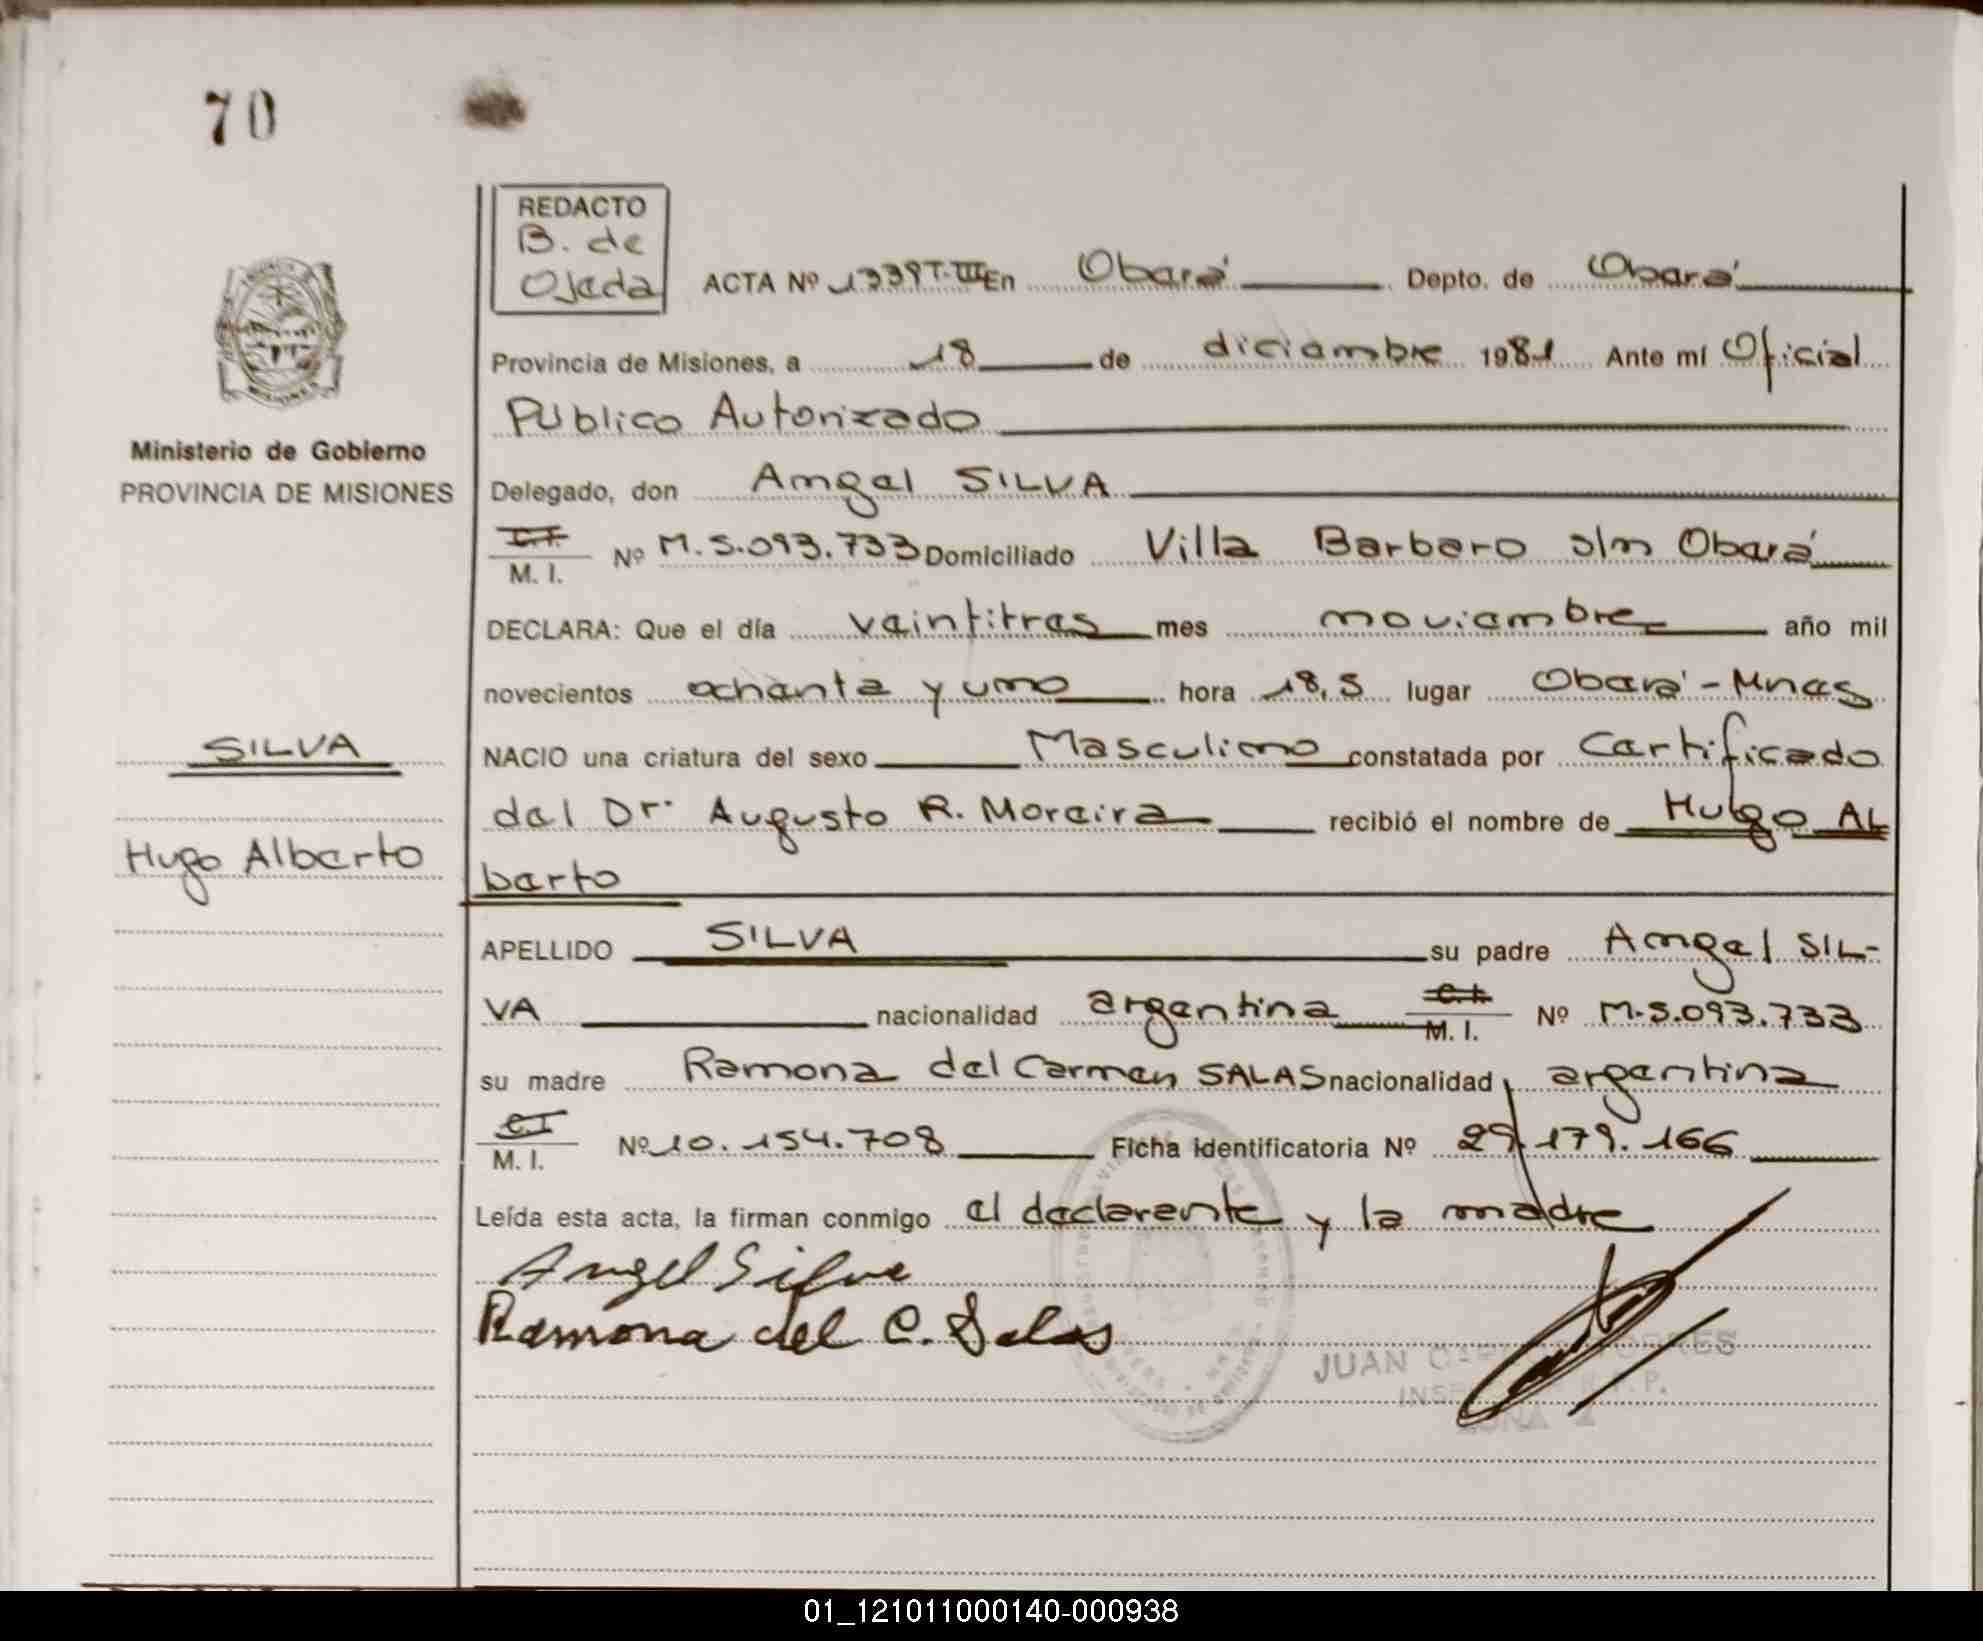 70
REDACTO
B. de
Ojeda
ACTA Nº 1339 T. III En Oberá Depto. de Oberá
Provincia de Misiones, a 18 de diciembre 1981 Ante mí Oficial
Público Autorizado
Ministerio de Gobierno
PROVINCIA DE MISIONES
Delegado, don Angel SILVA
C.I.
M. I. Nº M. 5.093.733 Domiciliado Villa Barbaro s/n Oberá
DECLARA: Que el día veintitres mes noviembre año mil
novecientos ochenta y uno hora 18,5 lugar Oberá - Mnes
SILVA
NACIO una criatura del sexo Masculino constatada por Certificado
del Dr. Augusto R. Moreira recibió el nombre de Hugo AL
Hugo Alberto
berto
APELLIDO SILVA su padre Angel SIL-
VA nacionalidad argentina C.I. M. I. Nº M. 5.093.733
su madre Ramona del Carmen SALAS nacionalidad argentina
C.I.
M. I. Nº 10.154.708 Ficha identificatoria Nº 29.179.166
Leída esta acta, la firman conmigo el declarante y la madre
Angel Silva
Ramona del C. Salas
JUAN
01_121011000140-000938